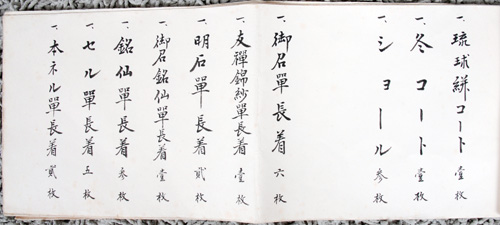 一、琉球絣コート 壹枚
一、冬コート 壹枚
一、ショール 参枚
一、御召單長着 六枚
一、友禪錦紗單長着 壹枚
一、明石單長着 貳枚
一、御召銘仙單長着 壹枚
一、銘仙單長着 参枚
一、セル單長着 五枚
一、本ネル單長着 貳枚